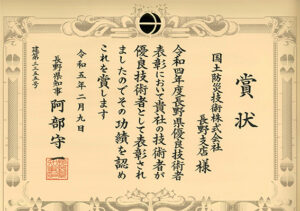 賞状
国土防災技術株式会社
長野支店 様
令和四年度長野県優良技術者
表彰において貴社の技術者が
優良技術者として表彰され
ましたのでその功績を認め
これを賞します
令和五年二月九日
長野県知事 阿部守一